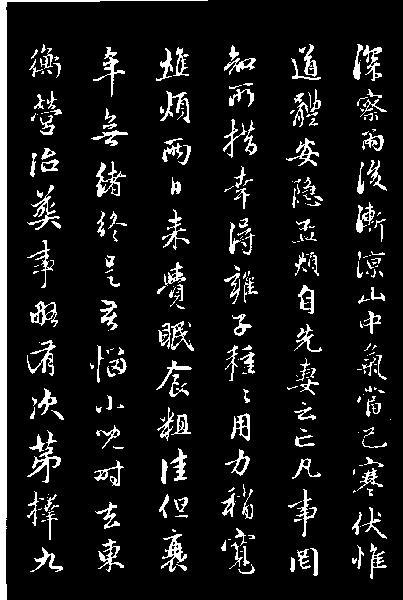 深察雨後漸涼山中氣當已寒伏惟
道體安隱孟頫自先妻云亡凡事罔
知所措幸得雍子種〻用力稍寬
燋煩兩日來覺眠食粗佳但衰
年無緒終是苦惱小兒時去東
衡營治葬事略有次第擇九